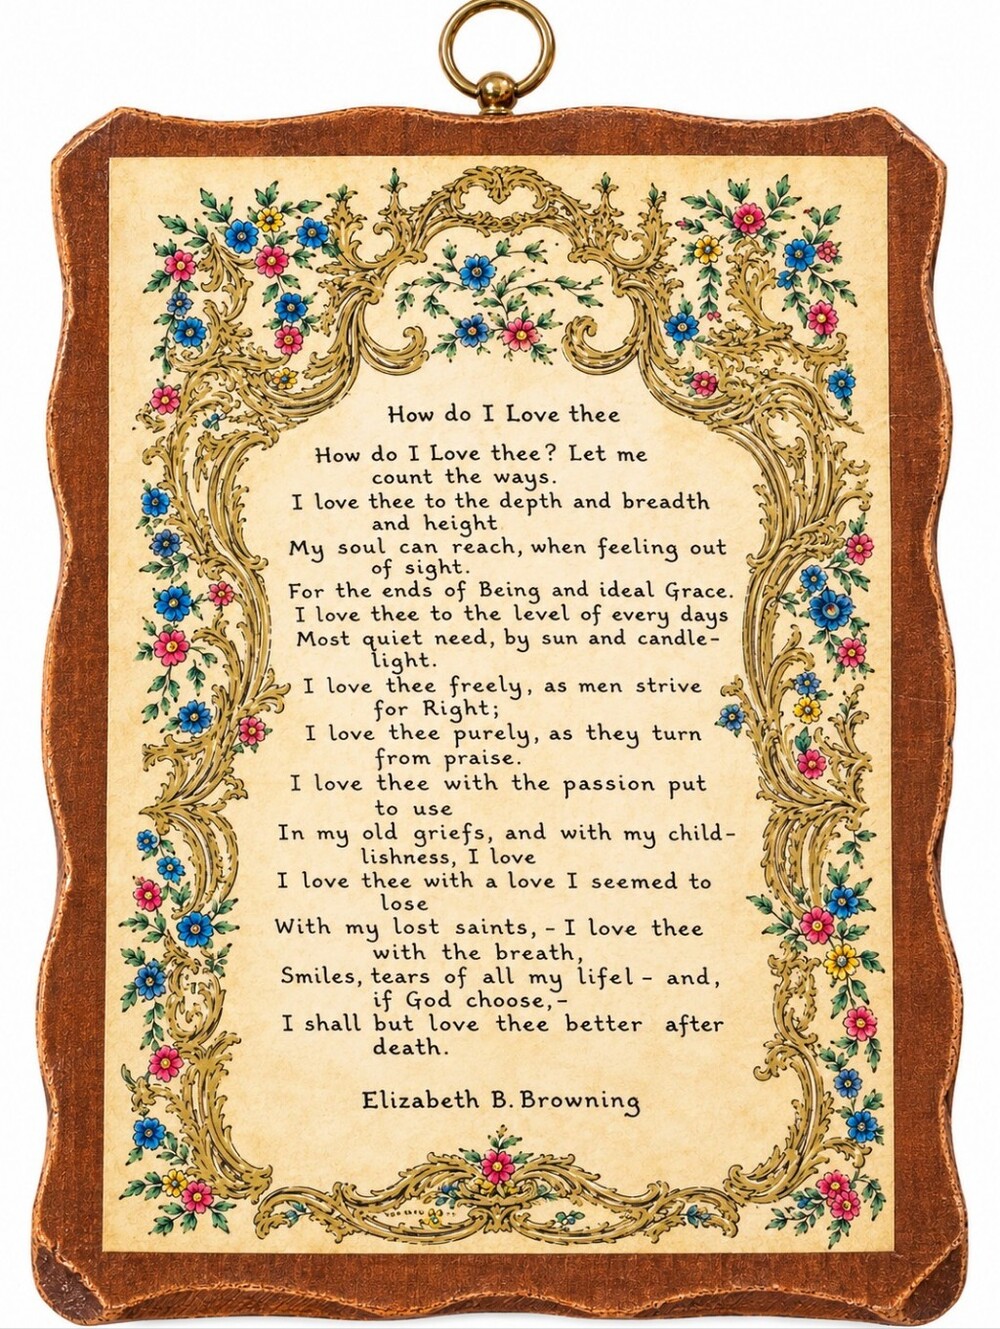 How do I Love thee
How do I Love thee? Let me
count the ways.
I love thee to the depth and breadth
and height
My soul can reach, when feeling out
of sight.
For the ends of Being and ideal Grace.
I love thee to the level of every days
Most quiet need, by sun and candle-
light.
I love thee freely, as men strive
for Right;
I love thee purely, as they turn
from praise.
I love thee with the passion put
to use
In my old griefs, and with my child-
lishness, I love
I love thee with a love I seemed to
lose
With my lost saints, - I love thee
with the breath,
Smiles, tears of all my lifel - and,
if God choose,-
I shall but love thee better after
death.
Elizabeth B. Browning